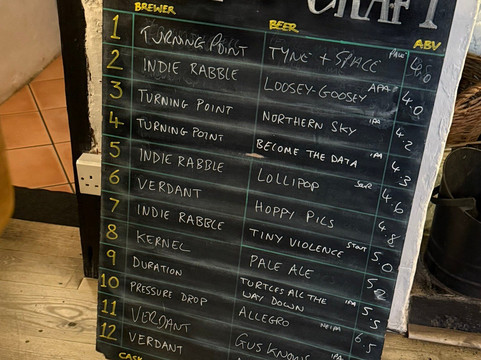 CRAFT
BREWER BEER ABV
1 TURNING POINT TYNE + SPACE PALE
2 INDIE RABBLE LOOSEY-GOOSEY APA 4.0
3 TURNING POINT NORTHERN SKY IPA 4.2
4 TURNING POINT BECOME THE DATA IPA 4.3
5 INDIE RABBLE LOLLIPOP SOUR 4.6
6 VERDANT HOPPY PILS 4.8
7 INDIE RABBLE TINY VIOLENCE STOUT 5.0
8 KERNEL PALE ALE
9 DURATION TURTLES ALL THE
WAY DOWN IPA 5.5
10 PRESSURE DROP ALLEGRO NEIPA 6.5
11 VERDANT GUS KNOWS
12 VERDANT
CASK